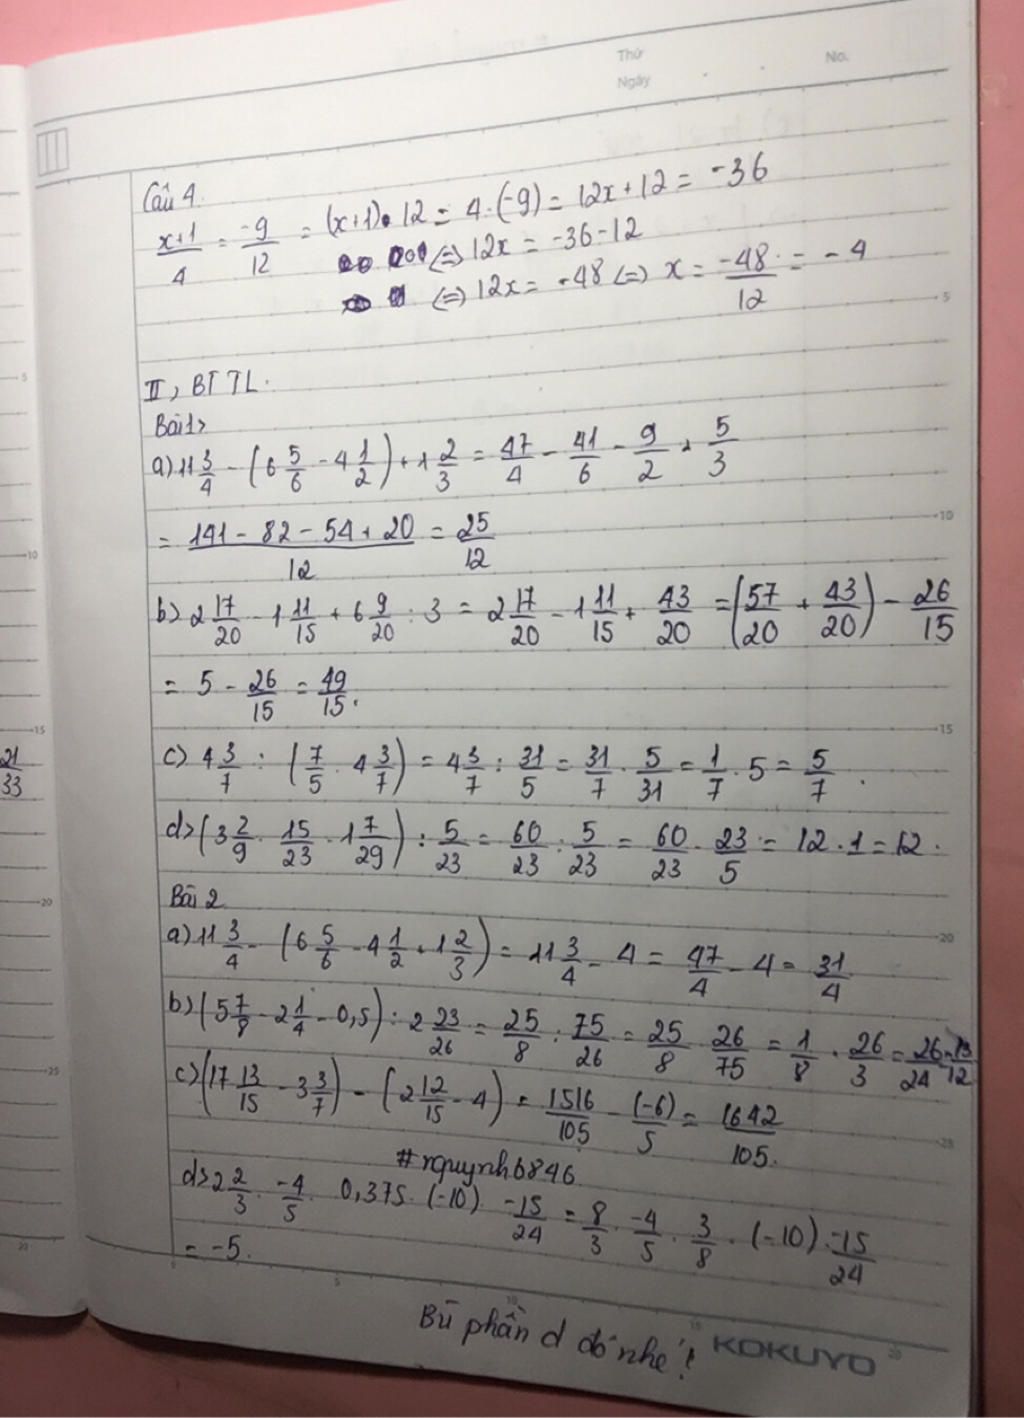 Thứ No.
Ngày
Câu 4.
\frac{x+1}{4} = \frac{-9}{12} = (x+1) \cdot 12 = 4 \cdot (-9) = 12x + 12 = -36
(=) 12x = -36 - 12
(=) 12x = -48 (=) x = \frac{-48}{12} = -4
II, BTTL.
Bài 1>
a) 11\frac{3}{4} - (6\frac{5}{6} - 4\frac{1}{2}) + 1\frac{2}{3} = \frac{47}{4} - \frac{41}{6} - \frac{9}{2} + \frac{5}{3}
= \frac{141 - 82 - 54 + 20}{12} = \frac{25}{12}
b) 2\frac{17}{20} - 1\frac{11}{15} + 6\frac{9}{20} : 3 = 2\frac{17}{20} - 1\frac{11}{15} + \frac{43}{20} = (\frac{57}{20} + \frac{43}{20}) - \frac{26}{15}
= 5 - \frac{26}{15} = \frac{49}{15}.
c) 4\frac{3}{7} : (\frac{7}{5} \cdot 4\frac{3}{7}) = 4\frac{3}{7} : \frac{31}{5} = \frac{31}{7} \cdot \frac{5}{31} = \frac{1}{7} \cdot 5 = \frac{5}{7}.
d> (3\frac{2}{9} \cdot \frac{15}{23} \cdot 1\frac{7}{29}) : \frac{5}{23} = \frac{60}{23} : \frac{5}{23} = \frac{60}{23} \cdot \frac{23}{5} = 12 \cdot 1 = 12.
Bài 2
a) 11\frac{3}{4} - (6\frac{5}{6} - 4\frac{1}{2} + 1\frac{2}{3}) = 11\frac{3}{4} - 4 = \frac{47}{4} - 4 = \frac{31}{4}
b) (5\frac{7}{8} - 2\frac{1}{4} - 0,5) : 2\frac{23}{26} = \frac{25}{8} : \frac{75}{26} = \frac{25}{8} \cdot \frac{26}{75} = \frac{1}{8} \cdot \frac{26}{3} = \frac{26}{24} = \frac{13}{12}
c) (17\frac{13}{15} - 3\frac{3}{7}) - (2\frac{12}{15} - 4) = \frac{1516}{105} - \frac{(-6)}{5} = \frac{1642}{105}.
#nguynh6846
d> 2\frac{2}{3} \cdot \frac{-4}{5} \cdot 0,375 \cdot (-10) \cdot \frac{-15}{24} = \frac{8}{3} \cdot \frac{-4}{5} \cdot \frac{3}{8} \cdot (-10) \cdot \frac{-15}{24}
= -5.
Bù phần d đó nhé!
KOKUYO
\frac{21}{33}